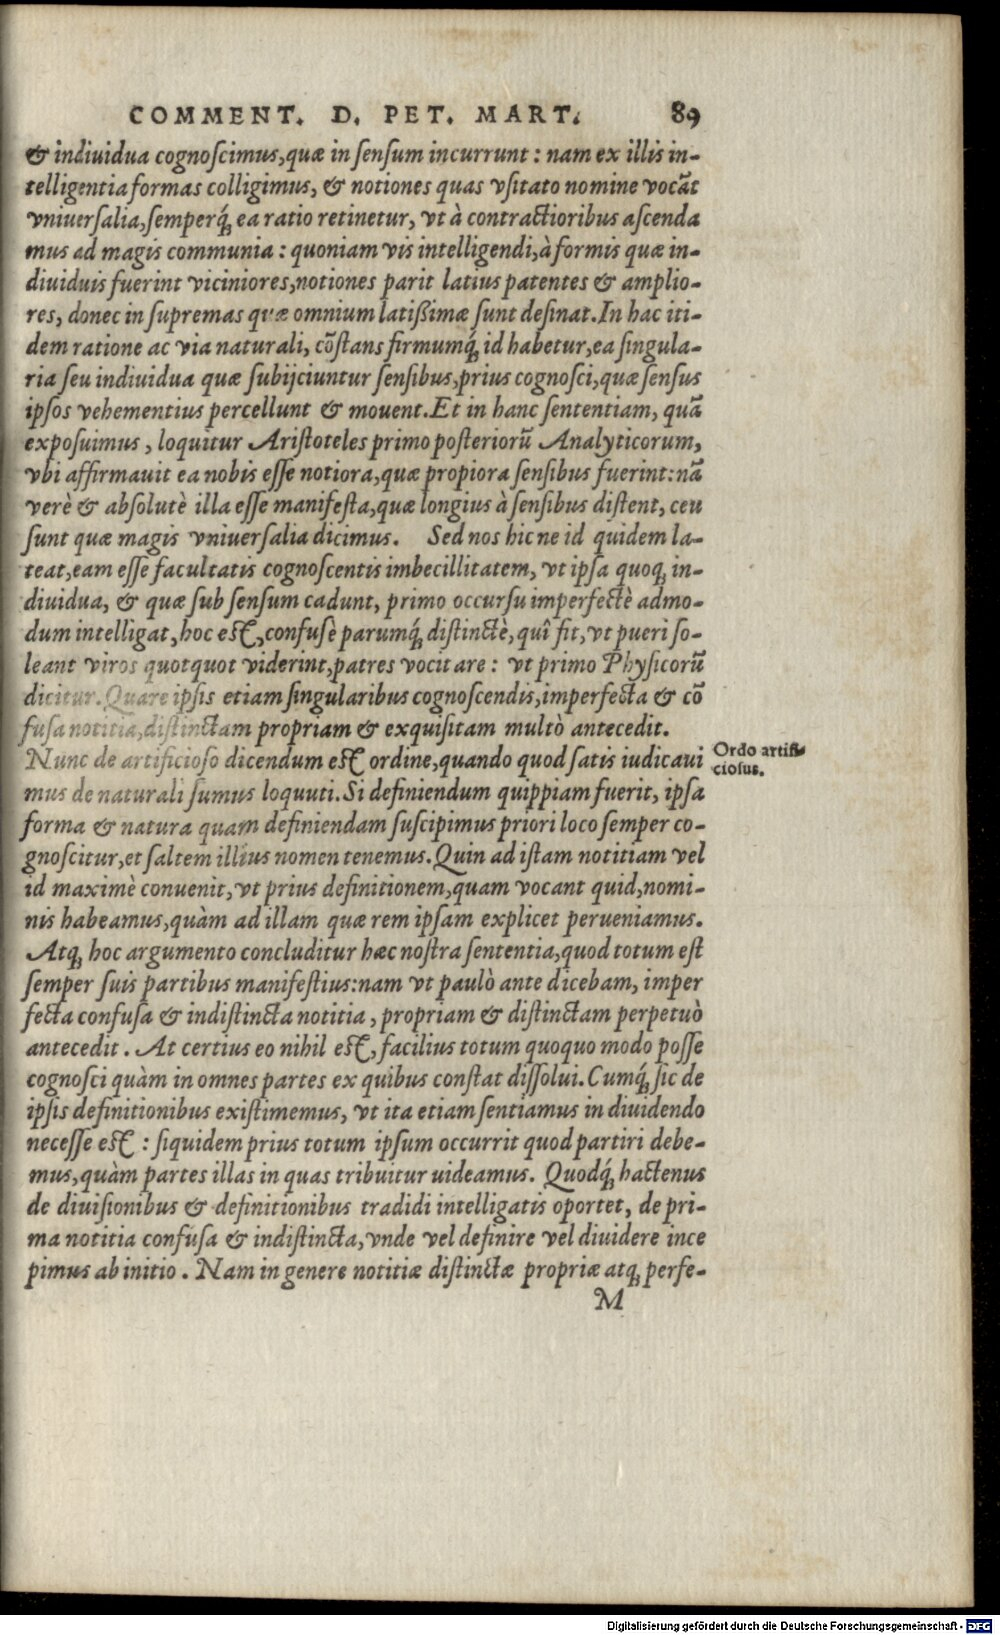 COMMENT. D. PET. MART. 89
& indiuidua cognoscimus,quæ in sensum incurrunt : nam ex illis in-
telligentia formas colligimus, & notiones quas vsitato nomine vocãt
vniuersalia,semperq́; ea ratio retinetur, vt à contractioribus ascenda
mus ad magis communia : quoniam vis intelligendi,à formis quæ in-
diuiduis fuerint viciniores,notiones parit latius patentes & amplio-
res, donec in supremas quæ omnium latißimæ sunt desinat.In hac iti-
dem ratione ac via naturali, cõstans firmumq́; id habetur,ea singula-
ria seu indiuidua quæ subijciuntur sensibus,prius cognosci,quæ sensus
ipsos vehementius percellunt & mouent.Et in hanc sententiam, quã
exposuimus , loquitur Aristoteles primo posteriorũ Analyticorum,
vbi affirmauit ea nobis esse notiora,quæ propiora sensibus fuerint:nã
verè & absolutè illa esse manifesta,quæ longius à sensibus distent, ceu
sunt quæ magis vniuersalia dicimus. Sed nos hic ne id quidem la-
teat,eam esse facultatis cognoscentis imbecillitatem, vt ipsa quoq; in-
diuidua, & quæ sub sensum cadunt, primo occursu imperfectè admo-
dum intelligat, hoc est,confusè parumq́; distinctè, quî fit,vt pueri so-
leant viros quotquot viderint,patres vocitare : vt primo Physicorũ
dicitur.Quare ipsis etiam singularibus cognoscendis,imperfecta & cõ
fusa notitia,distinctam propriam & exquisitam multò antecedit.
Nunc de artificioso dicendum est ordine,quando quod satis iudicaui
mus de naturali sumus loquuti.Si definiendum quippiam fuerit, ipsa
forma & natura quam definiendam suscipimus priori loco semper co-
gnoscitur,et saltem illius nomen tenemus.Quin ad istam notitiam vel
id maximè conuenit,vt prius definitionem,quam vocant quid,nomi-
nis habeamus,quàm ad illam quæ rem ipsam explicet perueniamus.
Atq; hoc argumento concluditur hæc nostra sententia,quod totum est
semper suis partibus manifestius:nam vt paulò ante dicebam, imper
fecta confusa & indistincta notitia , propriam & distinctam perpetuò
antecedit . At certius eo nihil est, facilius totum quoquo modo posse
cognosci quàm in omnes partes ex quibus constat dissolui.Cumq́; sic de
ipsis definitionibus existimemus, vt ita etiam sentiamus in diuidendo
necesse est : siquidem prius totum ipsum occurrit quod partiri debe-
mus,quàm partes illas in quas tribuitur uideamus. Quodq́; hactenus
de diuisionibus & definitionibus tradidi intelligatis oportet, de pri-
ma notitia confusa & indistincta,vnde vel definire vel diuidere ince
pimus ab initio . Nam in genere notitiæ distinctæ propriæ atq; perfe-
M
Ordo artifi-
ciosus.
Digitalisierung gefördert durch die Deutsche Forschungsgemeinschaft - DFG